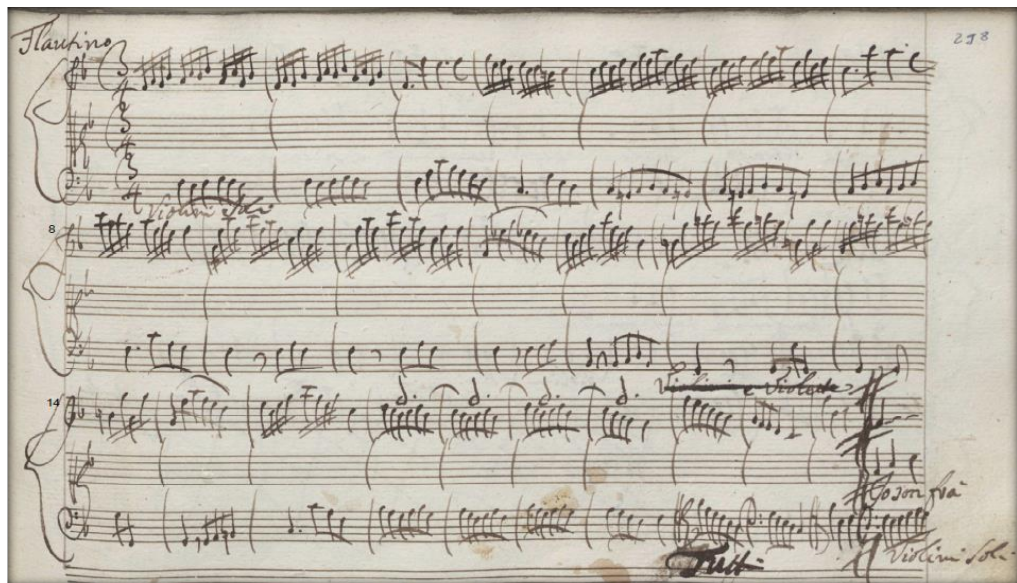 Flautino
298
3
4
3
4
3
4
Violini soli
8
Violini e Violette
14
Tutti
Violini Soli